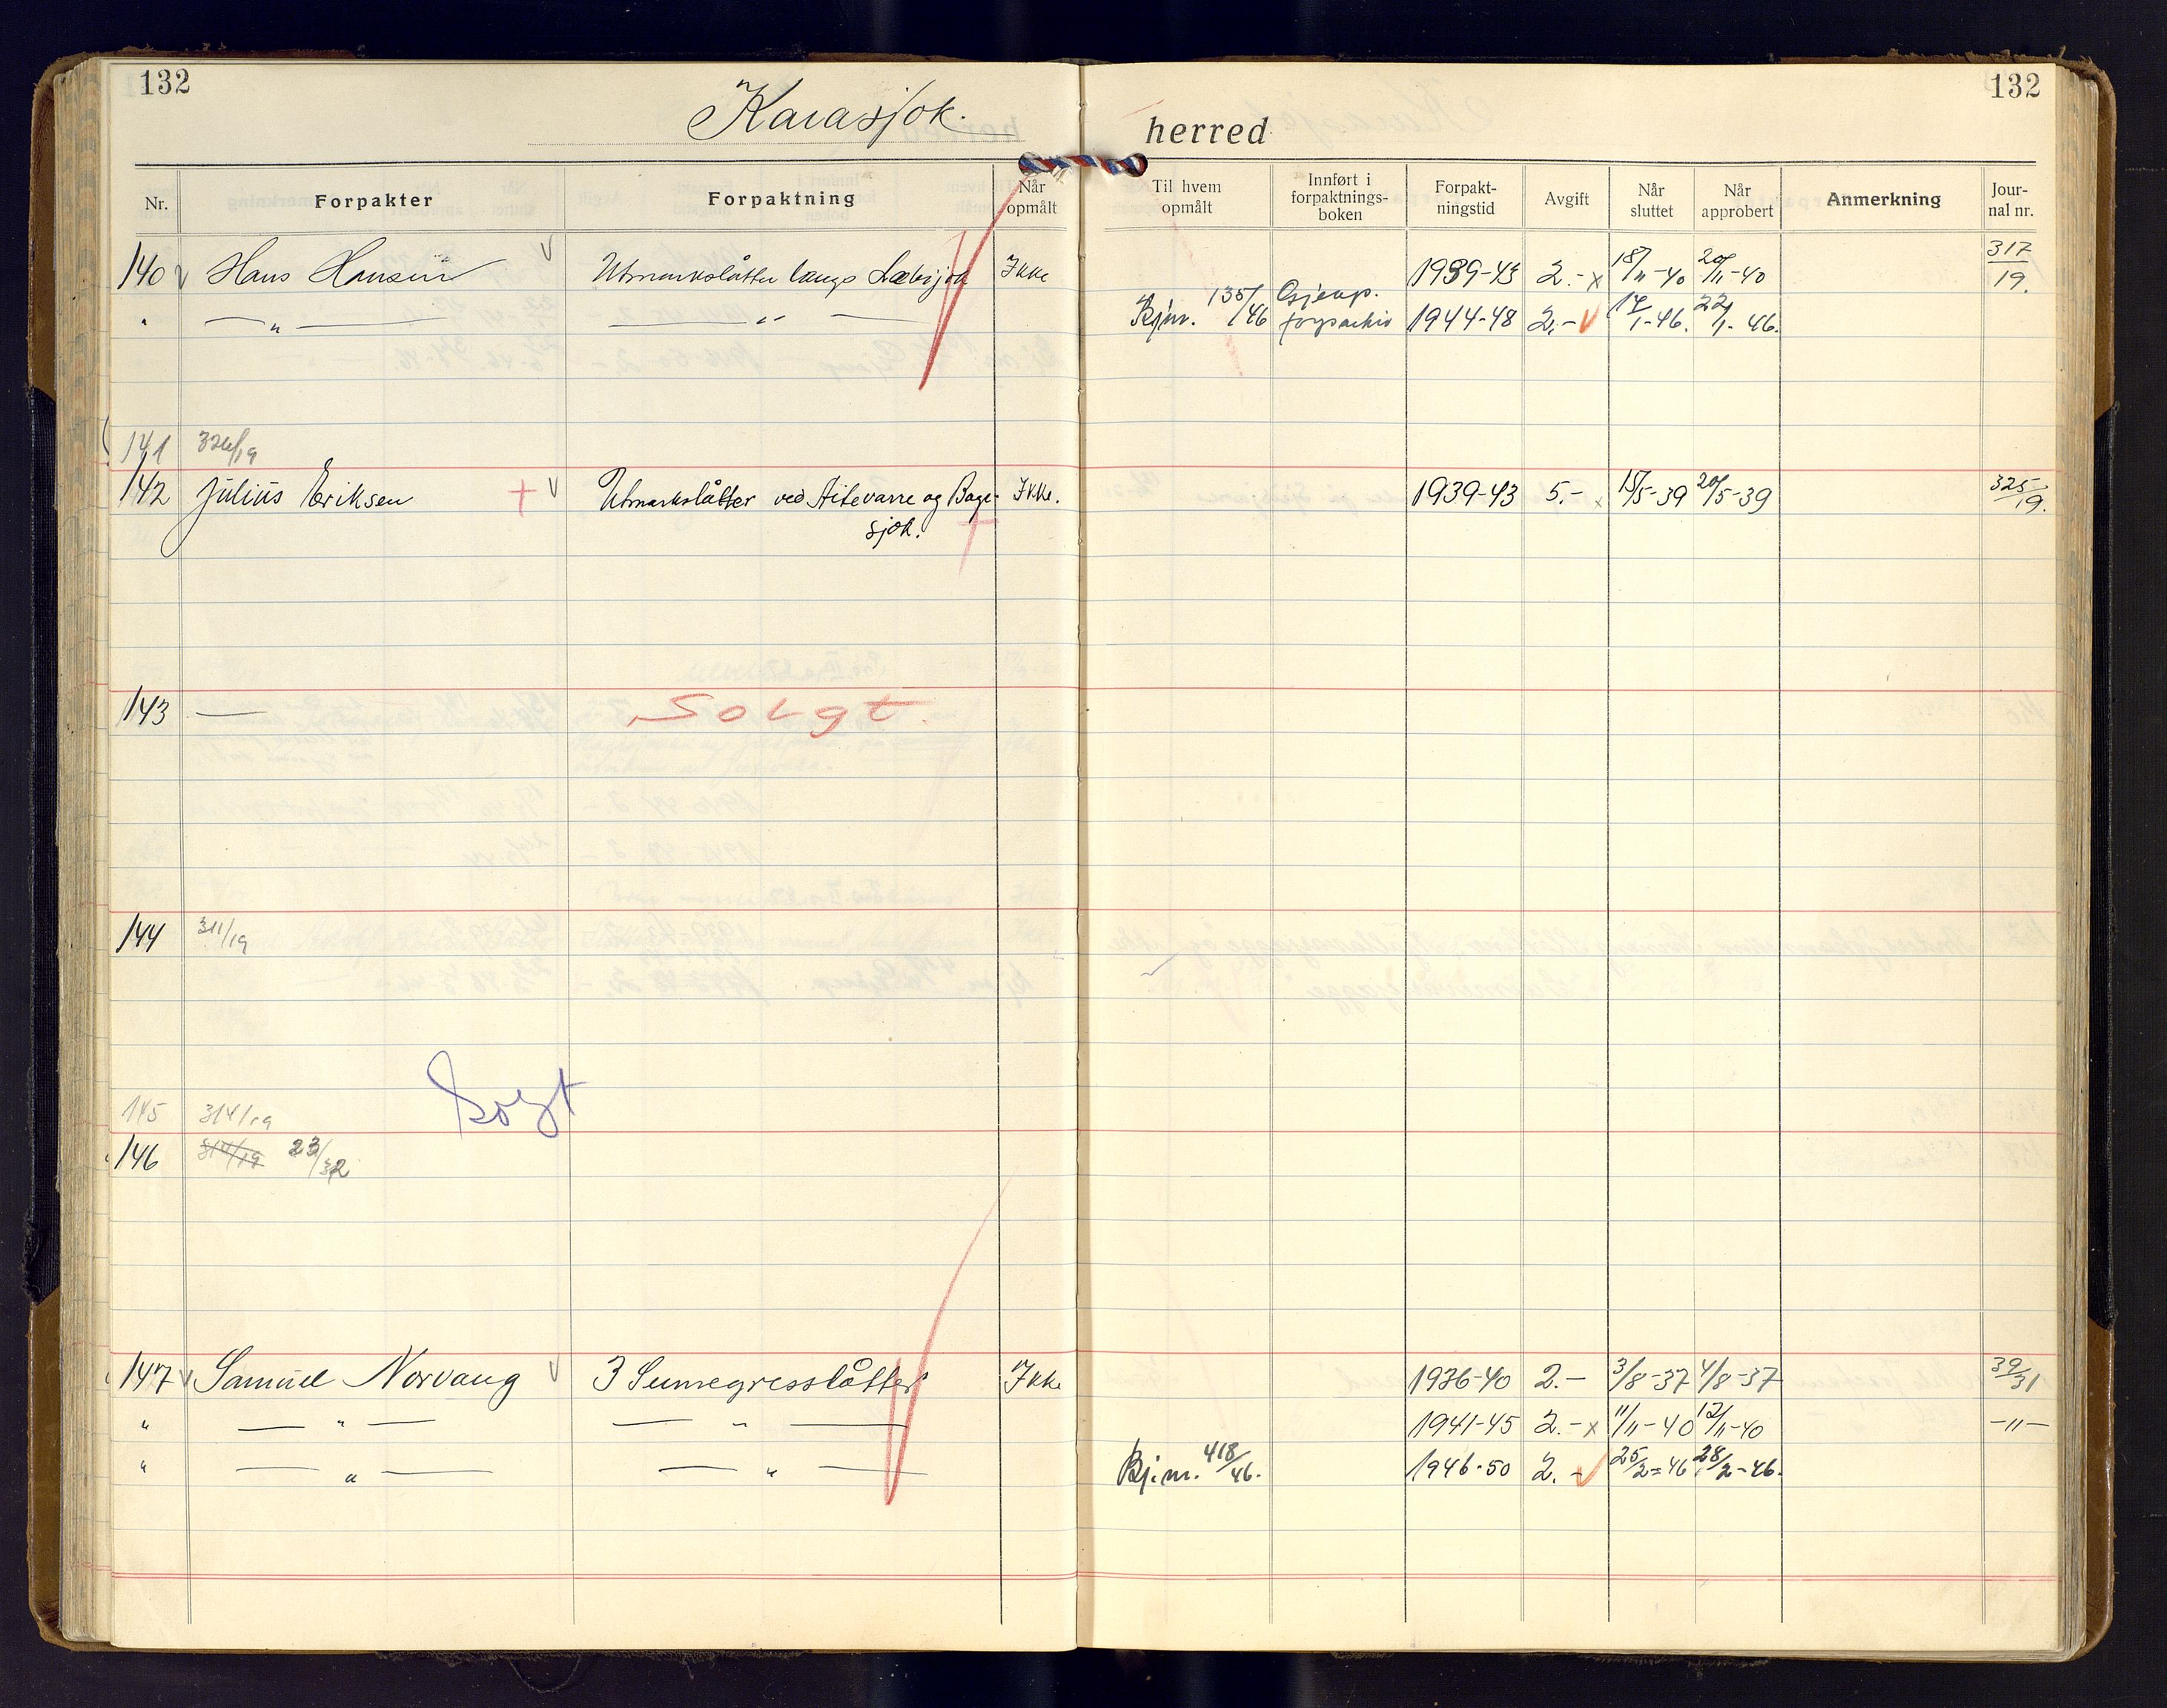 132
132
Karasjok.
herred
Nr.
Forpakter
Forpaktning
Når opmålt
Til hvem opmålt
Innført i forpaktnings-boken
Forpakt-ningstid
Avgift
Når sluttet
Når approbert
Anmerkning
Jour-nal nr.
140 Hans Hansen Utmarkslåtter langs Ikke 1939-43 2.- x 18/11-40 20/11-40 317/19.
" — " — — " — Bj.m. 135/46 1944-48 2.- 17/1-46. 22/1-46.
141 326/19
142 Julius Eriksen + Utmarkslåtter ved Aitevarre og Bage- Ikke. 1939-43 5.- x 15/5-39 20/5-39 325/19.
sjok.
143 — Solgt.
144 311/19
Solgt
145 314/19
146 314/19 23/32
147 Samuel Norvang 3 Sennegresslåtter Ikke 1936-40 2.- 3/8-37 4/8-37 39/31
" — " — — " — 1941-45 2.- x 11/11-40 12/11-40 -"-
" — " — — " — Bj.m. 418/46. 1946-50 2.- 25/2-46 28/2-46.